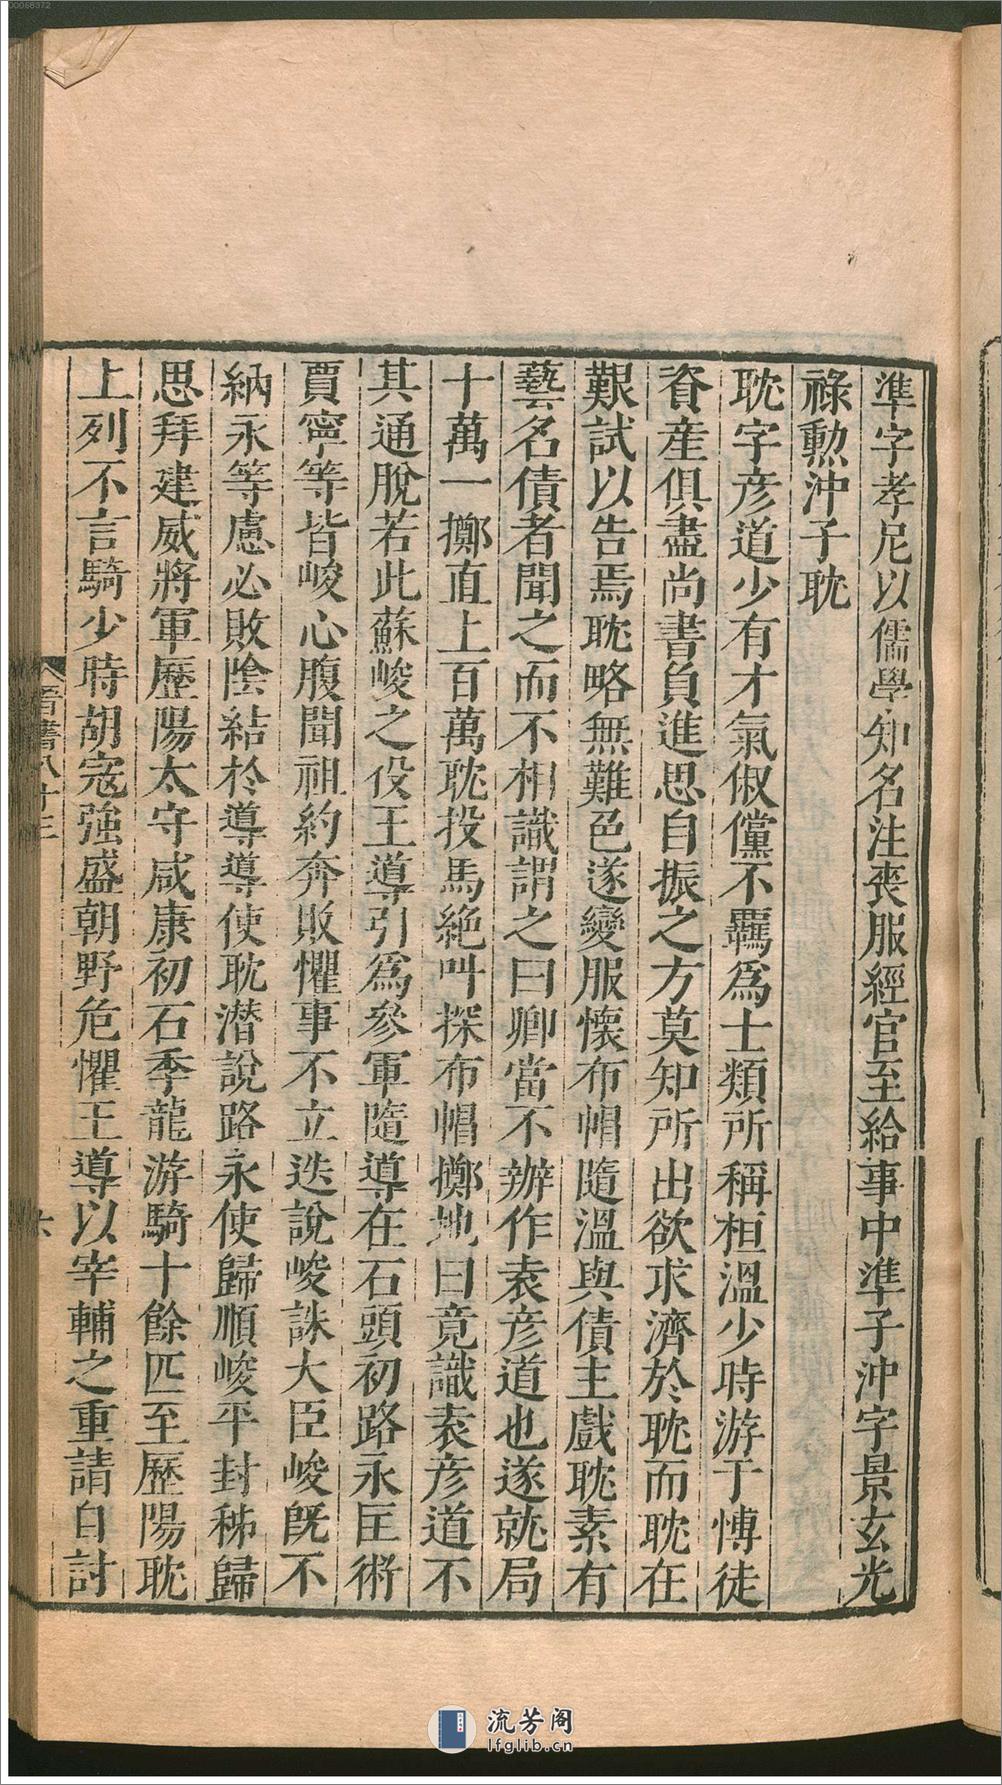 準字孝尼以儒學知名注喪服經官至給事中準子沖字景玄光
祿勲沖子耽
耽字彦道少有才氣俶儻不羈爲士類所稱桓溫少時游于愽徒
資産俱盡尚書負進思自振之方莫知所出欲求濟於耽而耽在
艱試以告焉耽略無難色遂變服懷布帽隨溫與債主戲耽素有
藝名債者聞之而不相識謂之曰卿當不辦作袁彦道也遂就局
十萬一擲直上百萬耽投馬絶叫探布帽擲地曰竟識袁彦道不
其通脫若此蘇峻之役王導引爲參軍隨導在石頭初路永匡術
賈寧等皆峻心腹聞祖約奔敗懼事不立迭說峻誅大臣峻旣不
納永等慮必敗陰結於導導使耽潛說路永使歸順峻平封秭歸
思拜建威將軍歷陽太守咸康初石季龍游騎十餘匹至歷陽耽
上列不言騎少時胡寇強盛朝野危懼王導以宰輔之重請自討
晉書八十三
六
00068372
流芳阁
lfglib.cn